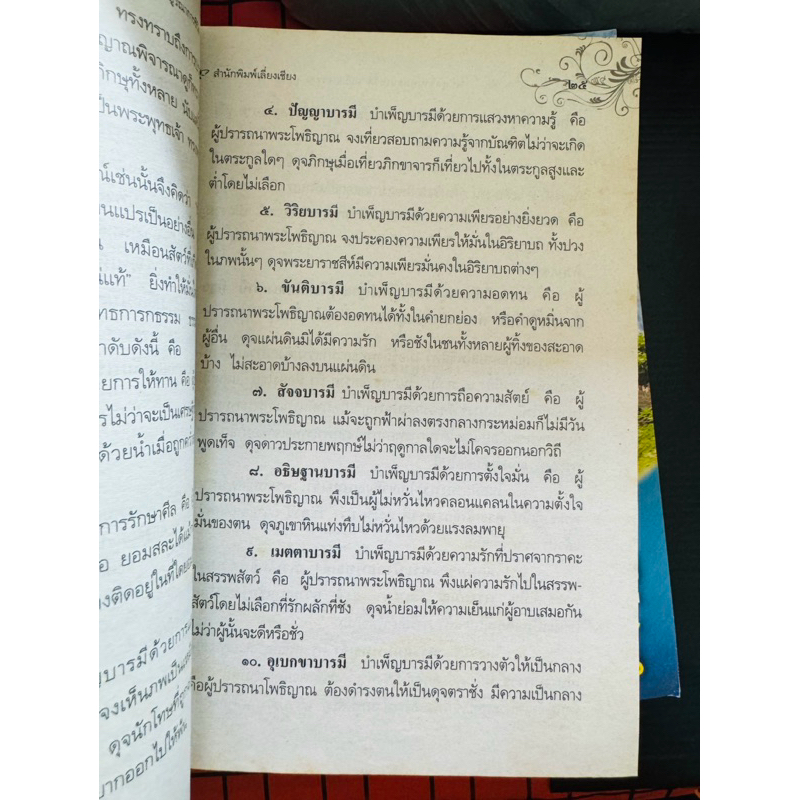 ทรงทราบถึงการ
ญาณพิจารณาดู
ภิกษุทั้งหลาย
เป็นพระพุทธเจ้า
ณ์เช่นนั้นจึงคิดว่า
นแปรเป็นอย่างอื่น
น เหมือนสัตว์
แท้" ยิ่งทำให้
ทธการกธรรม
าดับดังนี้ คือ
ยการให้ทาน คือ
รไม่ว่าจะเป็นเศรษฐี
ด้วยน้ำเมื่อถูก
การรักษาศีล คือ
อ ยอมสละได้แม้
งติดอยู่ในที่ใด
บารมีด้วยการ
จงเห็นภพเป็น
ดุจนักโทษที่ถูก
ากออกไปให้พ้น
สำนักพิมพ์เลี่ยงเชียง
๒๕
๔. ปัญญาบารมี บำเพ็ญบารมีด้วยการแสวงหาความรู้ คือ
ผู้ปรารถนาพระโพธิญาณ จงเที่ยวสอบถามความรู้จากบัณฑิตไม่ว่าจะเกิด
ในตระกูลใดๆ ดุจภิกษุเมื่อเที่ยวภิกขาจารก็เที่ยวไปทั้งในตระกูลสูงและ
ต่ำโดยไม่เลือก
๕. วิริยบารมี บำเพ็ญบารมีด้วยความเพียรอย่างยิ่งยวด คือ
ผู้ปรารถนาพระโพธิญาณ จงประคองความเพียรให้มั่นในอิริยาบถ ทั้งปวง
ในภพนั้นๆ ดุจพระยาราชสีห์มีความเพียรมั่นคงในอิริยาบถต่างๆ
๖. ขันติบารมี บำเพ็ญบารมีด้วยความอดทน คือ ผู้
ปรารถนาพระโพธิญาณต้องอดทนได้ทั้งในคำยกย่อง หรือคำดูหมิ่นจาก
ผู้อื่น ดุจแผ่นดินมิได้มีความรัก หรือชังในชนทั้งหลายผู้ทิ้งของสะอาด
บ้าง ไม่สะอาดบ้างลงบนแผ่นดิน
๗. สัจจบารมี บำเพ็ญบารมีด้วยการถือความสัตย์ คือ ผู้
ปรารถนาพระโพธิญาณ แม้จะถูกฟ้าผ่าลงตรงกลางกระหม่อมก็ไม่มีวัน
พูดเท็จ ดุจดาวประกายพฤกษ์ไม่ว่าฤดูกาลใดจะไม่โคจรออกนอกวิถี
๘. อธิษฐานบารมี บำเพ็ญบารมีด้วยการตั้งใจมั่น คือ ผู้
ปรารถนาพระโพธิญาณ พึงเป็นผู้ไม่หวั่นไหวคลอนแคลนในความตั้งใจ
มั่นของตน ดุจภูเขาหินแท่งทึบไม่หวั่นไหวด้วยแรงลมพายุ
๙. เมตตาบารมี บำเพ็ญบารมีด้วยความรักที่ปราศจากราคะ
ในสรรพสัตว์ คือ ผู้ปรารถนาพระโพธิญาณ พึงแผ่ความรักไปในสรรพ-
สัตว์โดยไม่เลือกที่รักผลักที่ชัง ดุจน้ำย่อมให้ความเย็นแก่ผู้อาบเสมอกัน
ไม่ว่าผู้นั้นจะดีหรือชั่ว
๑๐. อุเบกขาบารมี บำเพ็ญบารมีด้วยการวางตัวให้เป็นกลาง
คือผู้ปรารถนาโพธิญาณ ต้องดำรงตนให้เป็นดุจตราชั่ง มีความเป็นกลาง